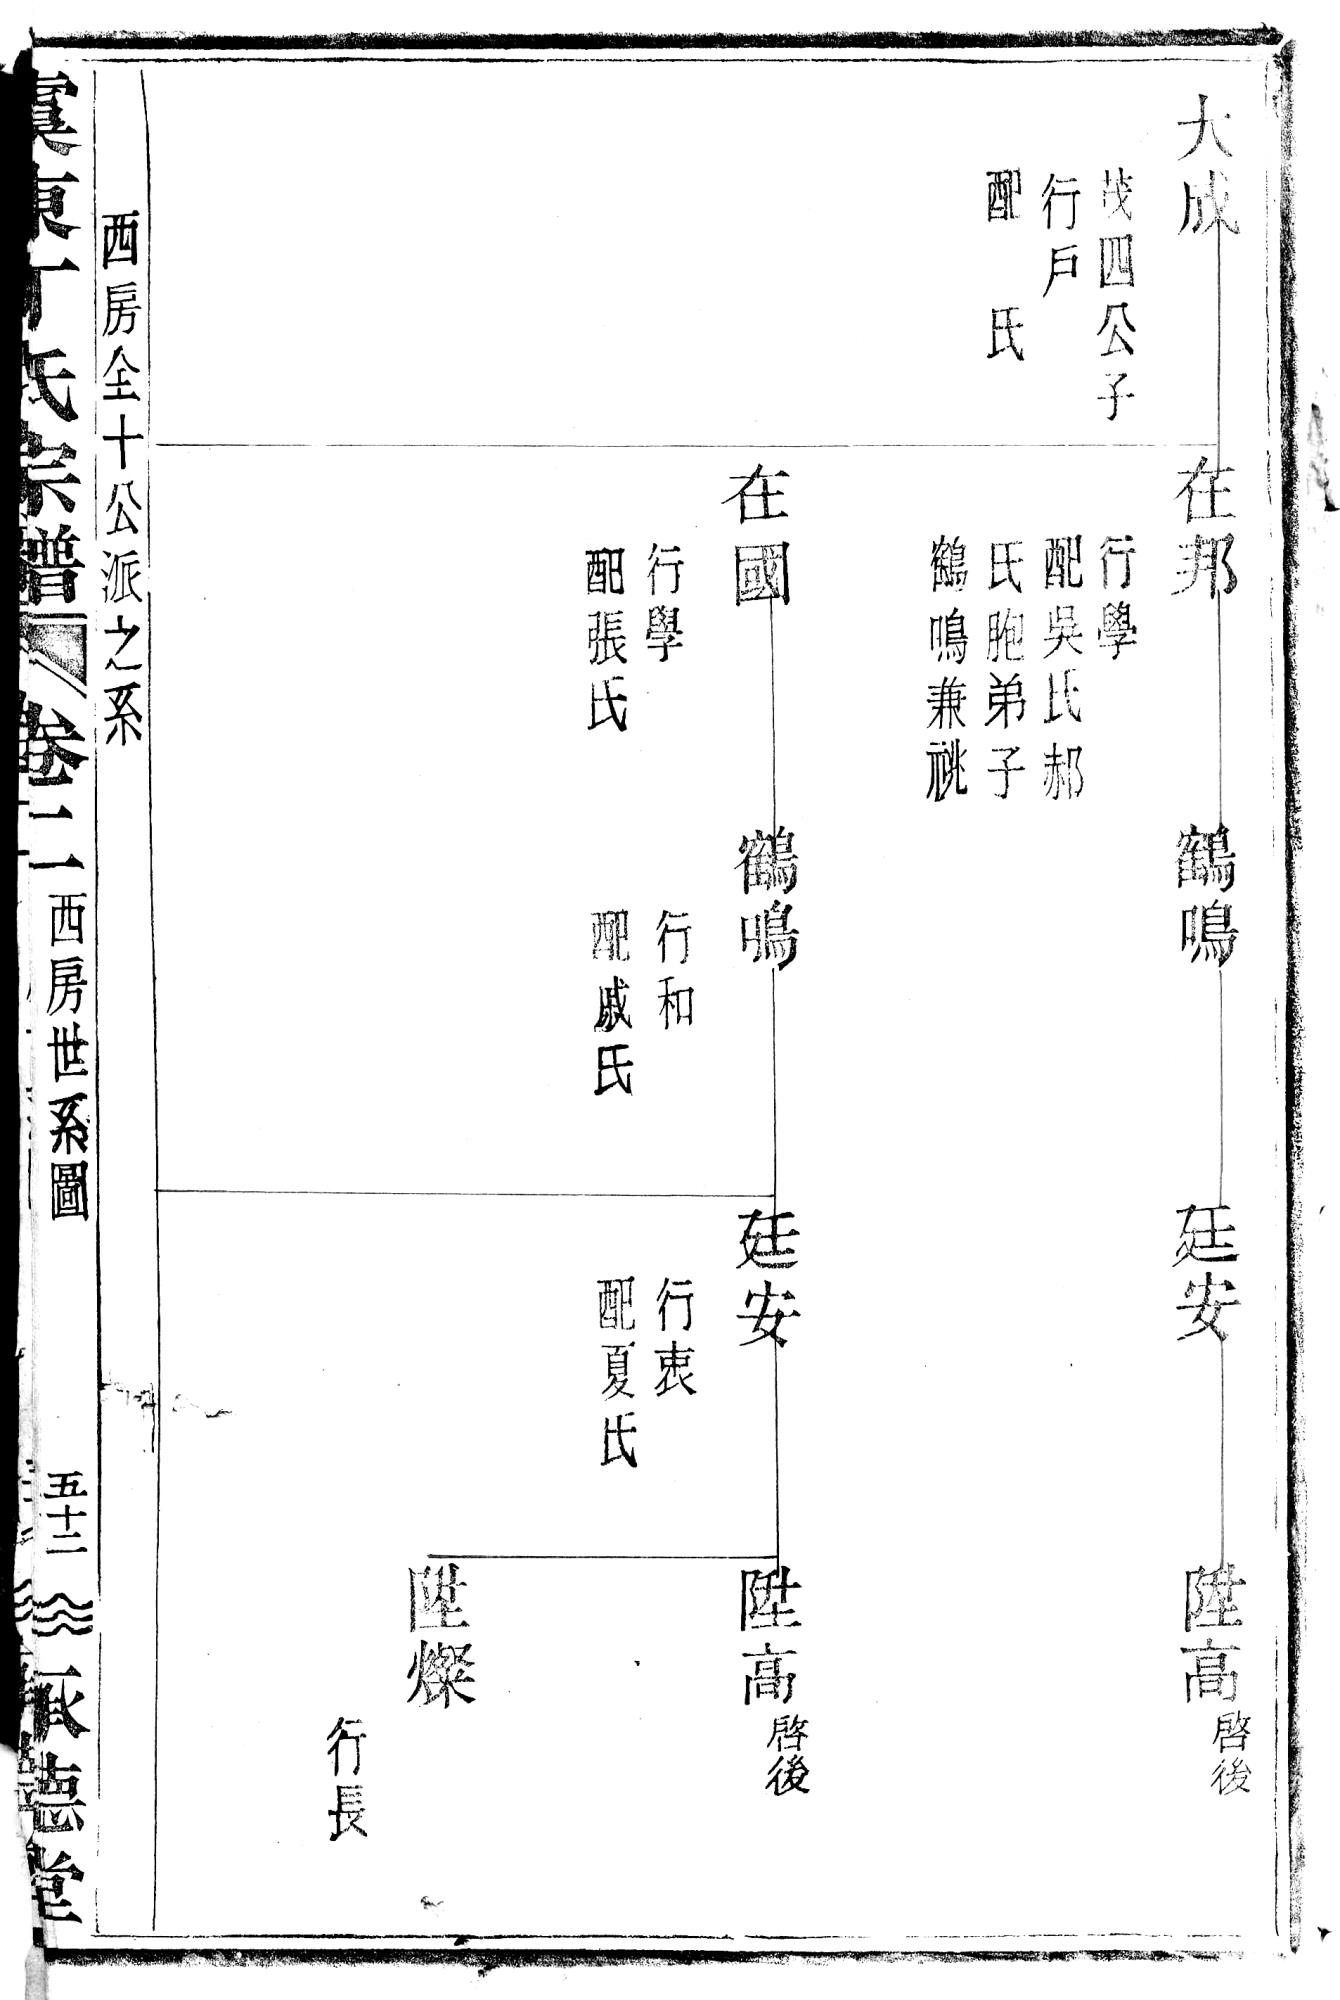 大成
茂四公子
行戶
配　氏
在邦
行學
配吳氏郝
氏胞弟子
鶴鳴兼祧
鶴鳴
廷安
陞高啓後
在國
行學
配張氏
鶴鳴
行和
配戚氏
廷安
行衷
配夏氏
陞高啓後
陞燦
行長
西房仝十公派之系
虞東丁氏宗譜
卷二
西房世系圖
五十二
承德堂